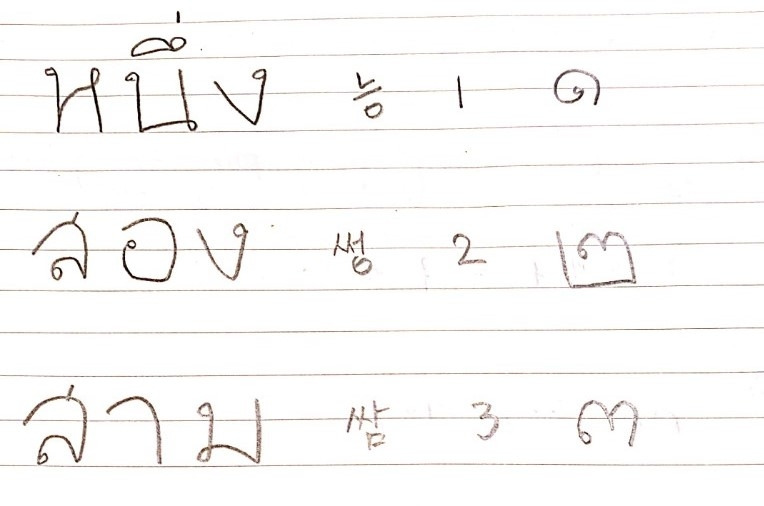 หนึ่ง 능 1 ๑
สอง 썽 2 ๒
สาม 쌈 3 ๓